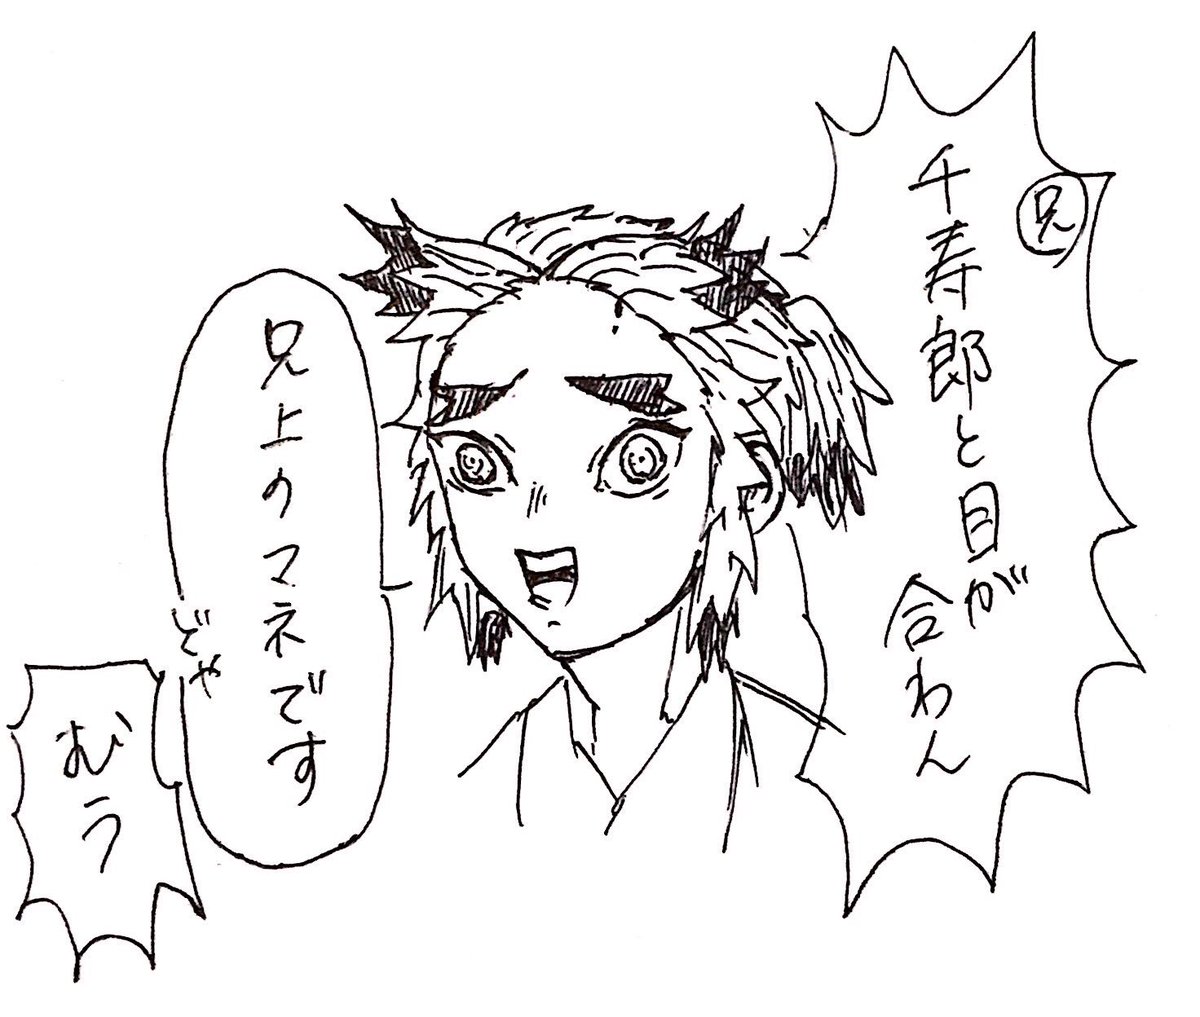 兄
千寿郎と目が
合わん
兄上のマネです
どや
むう